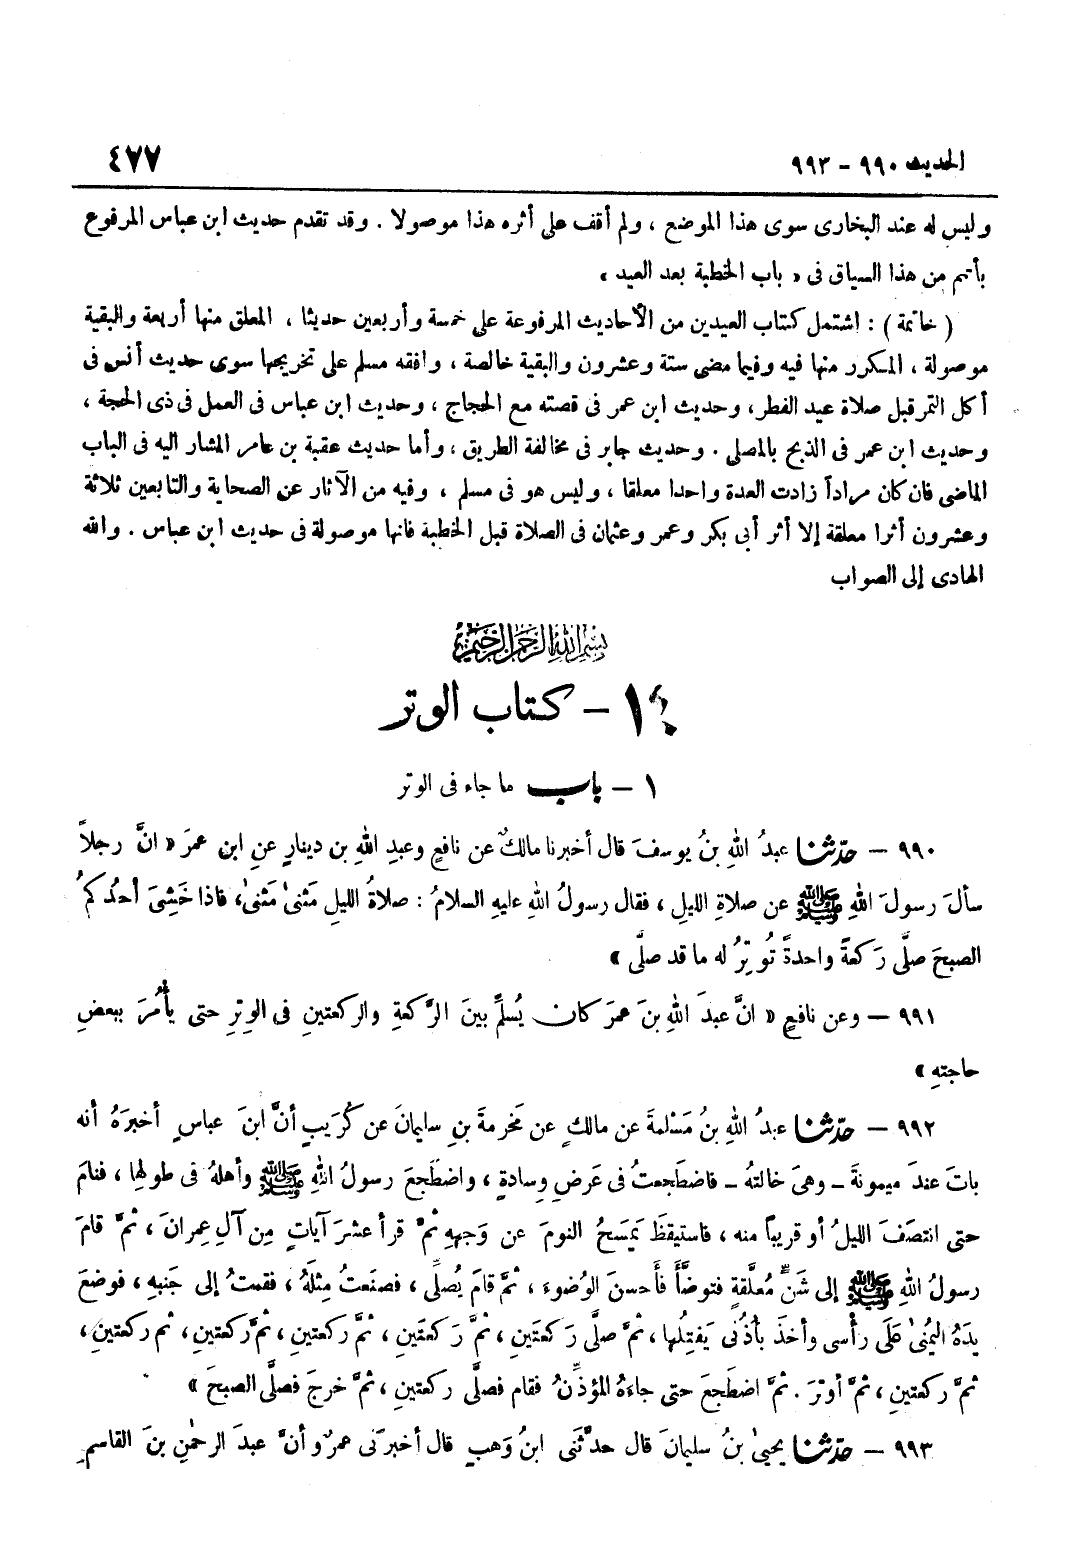 الحديث ٩٩٠ - ٩٩٣
٤٧٧
وليس له عند البخارى سوى هذا الموضع ، ولم أقف على أثره هذا موصولا . وقد تقدم حديث ابن عباس المرفوع
بأتم من هذا السياق فى « باب الخطبة بعد العيد »
( خاتمة ) : اشتمل كتاب العيدين من الأحاديث المرفوعة على خمسة وأربعين حديثا ، المعلق منها أربعة والبقية
موصولة ، المكرر منها فيه وفيما مضى ستة وعشرون والبقية خالصة ، وافقه مسلم على تخريجها سوى حديث أنس فى
أكل التمر قبل صلاة عيد الفطر، وحديث ابن عمر فى قصته مع الحجاج ، وحديث ابن عباس فى العمل فى ذى الحجة ،
وحديث ابن عمر فى الذبح بالمصلى . وحديث جابر فى مخالفة الطريق ، وأما حديث عقبة بن عامر المشار اليه فى الباب
الماضى فان كان مراداً زادت العدة واحدا معلقا ، وليس هو فى مسلم ، وفيه من الآثار عن الصحابة والتابعين ثلاثة
وعشرون أثرا معلقة إلا أثر أبى بكر وعمر وعثمان فى الصلاة قبل الخطبة فانها موصولة فى حديث ابن عباس . والله
الهادى إلى الصواب
بسم الله الرحمن الرحيم
١٤ - كتاب الوتر
١ - باب ما جاء فى الوتر
٩٩٠ - حدّثنا عبدُ اللهِ بنُ يوسفَ قال أخبرنا مالكٌ عن نافعٍ وعبدِ اللهِ بن دينارٍ عنِ ابن عمرَ « انَّ رجلاً
سألَ رسولَ اللهِ ﷺ عن صلاةِ الليلِ ، فقال رسولُ اللهِ عليهِ السلامُ : صلاةُ الليلِ مَثنىٰ مَثنىٰ، فاذا خَشِىَ أحدُكمُ
الصبحَ صلَّى رَكعةً واحدةً تُوتِرُ له ما قد صلَّى »
٩٩١ - وعن نافعٍ « انَّ عبدَ اللهِ بنَ عمرَ كان يُسلِّمُ بينَ الرَّكعةِ والركعتينِ فى الوِترِ حتى يأمُرَ ببعضِ
حاجتهِ »
٩٩٢ - حدّثنا عبدُ اللهِ بنُ مَسْلمةَ عن مالكٍ عن مَخرمةَ بنِ سليمانَ عن كُرَيبٍ أنَّ ابنَ عباسٍ أخبرَهُ أنه
باتَ عندَ ميمونةَ - وهىَ خالتهُ - فاضطَجعتُ فى عَرضِ وِسادةٍ ، واضطَجعَ رسولُ اللهِ ﷺ وأهلهُ فى طولها ، فنامَ
حتى انتصَفَ الليلُ أو قريباً منه ، فاستيقظَ يَمسَحُ النومَ عن وَجههِ ثمَّ قرأ عشرَ آياتٍ مِن آلِ عِمرانَ ، ثمَّ قامَ
رسولُ اللهِ ﷺ إلى شَنٍّ مُعلَّقةٍ فتوضَّأَ فأَحسنَ الوُضوءَ ، ثمَّ قامَ يُصلِّى ، فصنَعتُ مِثلهُ ، فقمتُ إلى جَنبهِ ، فوضعَ
يدَهُ اليُمنىٰ عَلَى رأسى وأخذَ بأذُنى يَفتِلُها ، ثمَّ صلَّى رَكعتَينِ ، ثمَّ رَكعتَينِ ، ثمَّ ركعتينِ ، ثمَّ ركعتينِ، ثم ركعتينِ ،
ثمَّ ركعتينِ ، ثمَّ أوتَرَ . ثمَّ اضطَجعَ حتى جاءَهُ المؤذِّنُ فقام فصلَّى ركعتينِ ، ثمَّ خرجَ فصلَّى الصبحَ »
٩٩٣ - حدّثنا يحيىٰ بنُ سليمانَ قال حدَّثَنى ابنُ وَهبٍ قال أخبرَنى عمرٌو أنَّ عبدَ الرحمٰنِ بنَ القاسمِ